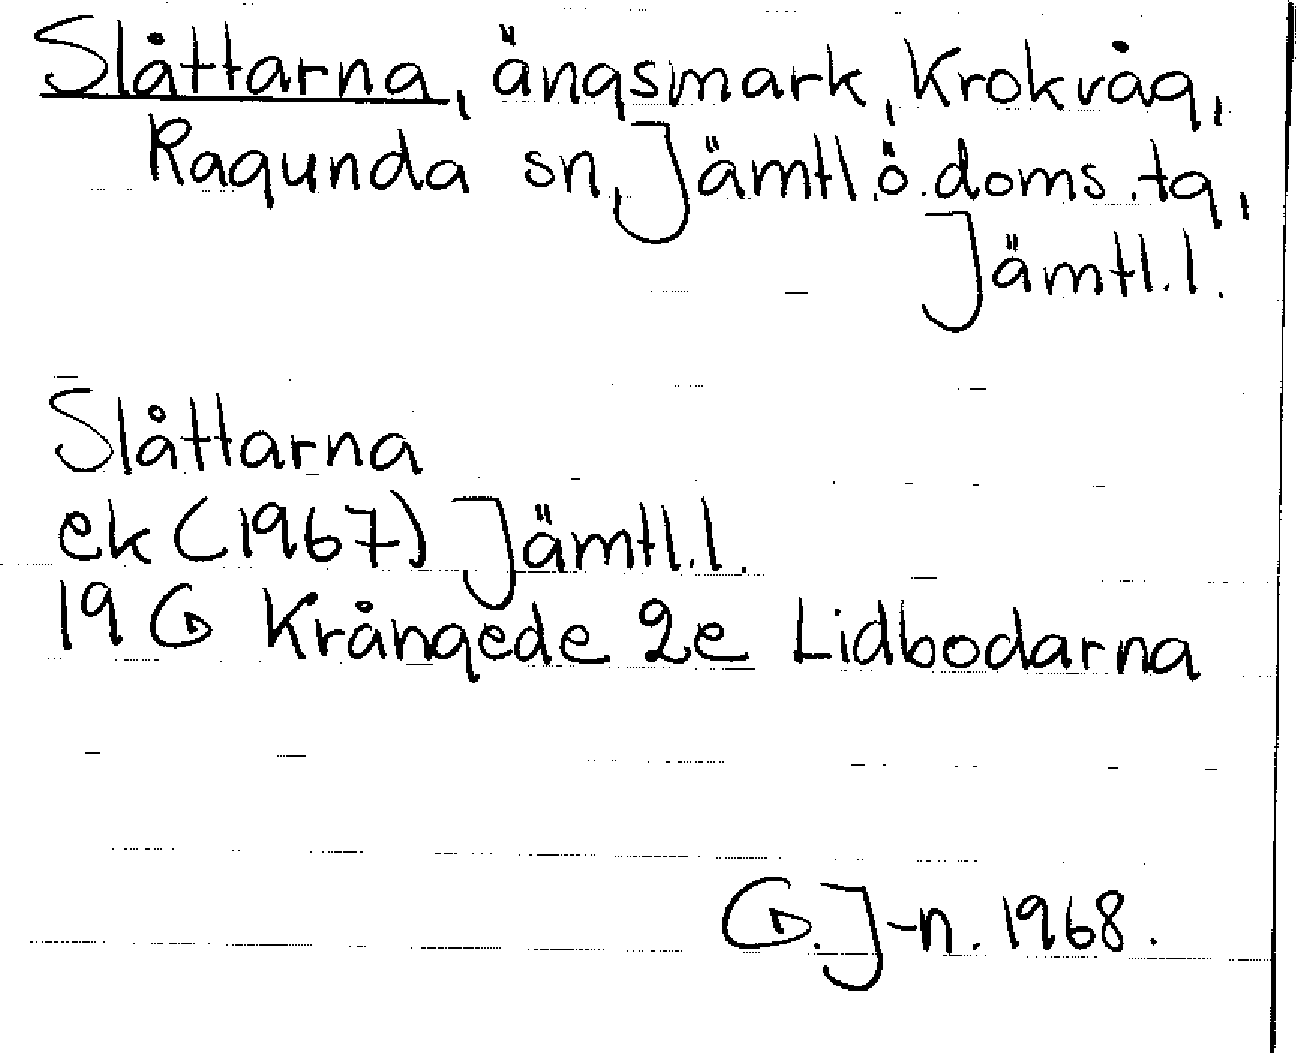 Slåttarna, ängsmark, Krokvåg,
Ragunda sn, Jämtl.ö.doms.tg,
Jämtl.l.
Slåttarna
ek (1967) Jämtl.l.
19 G Krångede 2e Lidbodarna
G.J-n. 1968.